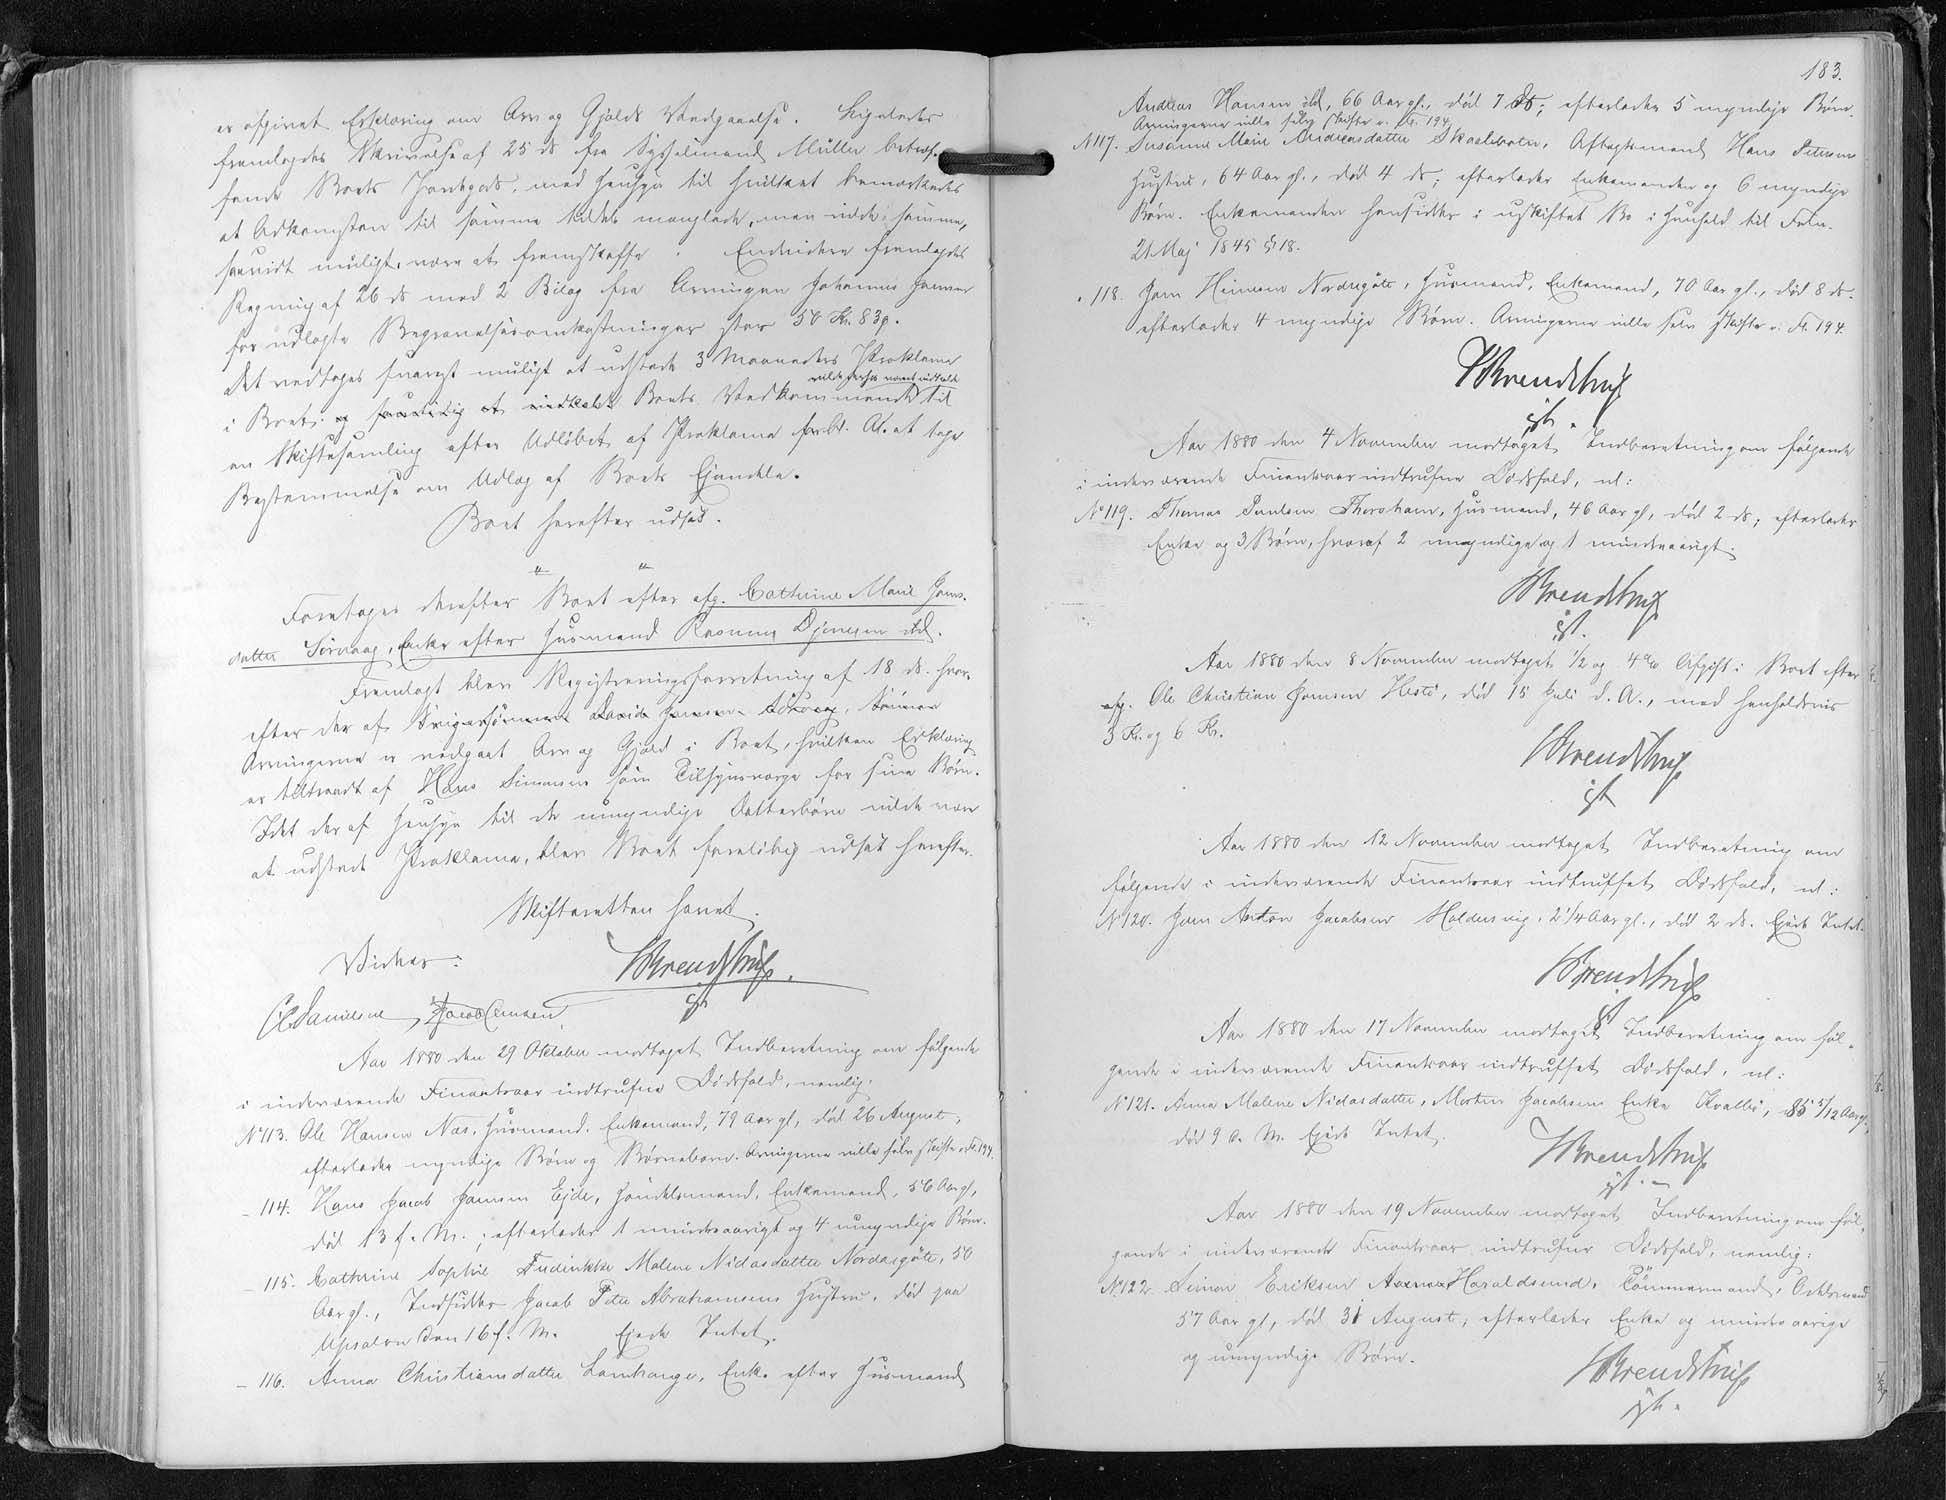 er afgivet Erklæring om Arv og Gjælds Vedgaaelse. Ligeledes
fremlagdes Skrivelse af 25 ds fra Sysselmand Müller betræf-
fende Boets Jordegods, med Hensyn til hvilket bemærkedes
at Adkomsten til samme tildels manglede, men vilde samme,
saavidt muligt, være at fremskaffe. Endvidere fremlagdes
Regning af 26 ds med 2 Bilag fra Arvingen Johannes Hansen
for udlagte Begravelsesomkostninger stor 50 Kr. 83 ø.
Det vedtoges snarest muligt at udstede 3 Maaneders Proklama
vilde derhos være at indkalde
i Boet. og samtidig at indkalde Boets Vedkommende til
en Skiftesamling efter Udløbet af Proklama for bl. A. at tage
Bestemmelse om Udlæg af Boets Ejendele.
Boet herefter udsat.
Foretoges derefter Boet efter afg. Cathrine Marie Joens-
datter Sørvaag, Enke efter Husmand Rasmus Djonesen ibd.
Fremlagt blev Registreringsforretning af 18 ds. hvor-
efter der af Svigersønnen David Sørvaag, Sønnen
Arvingerne er vedgaaet Arv og Gjæld i Boet, hvilken Erklæring
er tiltraadt af Hans Simonsen som Tilsynsværge for sine Børn.
Idet der af Hensyn til de umyndige Datterbørn vilde være
at udstede Proklama, blev Boet foreløbig udsat herefter.
Skifteretten hævet.
Vidner: HBrendstrup
cst
Danielsen, Jacob Clemensen
Aar 1880 den 29 Oktober modtaget Indberetning om følgende
i indeværende Finantsaar indtrufne Dødsfald, nemlig:
No 113. Ole Hansen Næs, Husmand, Enkemand, 79 Aar gl, død 26 August,
efterlader myndige Børn og Børnebørn. Arvingerne ville selv skifte v. Fl. 194.
- 114. Hans Jacob Joensen Ejde, Handelsmand, Enkemand, 56 Aar gl,
død 13 f. M.; efterlader 1 mindreaarigt og 4 umyndige Børn.
- 115. Cathrine Sophie Frederikke Malene Niclasdatter Nordregøte, 50
Aar gl., Indsidder Jacob Peter Abrahamsens Hustru, død paa
Upsalen den 16 f. M. Ejede Intet.
- 116. Anna Christiansdatter Lamhauge, Enke efter Husmand
183.
Andreas Hansen ibd, 66 Aar gl., død 7 ds; efterlader 5 myndige Børn.
Arvingerne ville selv skifte v. Fl. 194.
No 117. Susanne Marie Andreasdatter Skaalebotn, Aftægtsmand Hans Petersens
Hustru, 64 Aar gl., død 4 ds; efterlader Enkemanden og 6 myndige
Børn. Enkemanden hensidder i uskiftet Bo i Henhold til Frdn.
21 Maj 1845 § 18.
- 118. Joen Heinesen Nordregøte, Husmand, Enkemand, 70 Aar gl., død 8 ds.
efterlader 4 myndige Børn. Arvingerne ville selv skifte v. Fl. 194.
HBrendstrup
cst.
Aar 1880 den 4 November modtaget Indberetning om følgende
i indeværende Finantsaar indtrufne Dødsfald, nl:
No 119. Thomas Poulsen Thorshavn, Husmand, 46 Aar gl, død 2 ds; efterlader
Enke og 3 Børn, hvoraf 2 umyndige og 1 mindreaarigt.
HBrendstrup
cst.
Aar 1880 den 8 November modtaget 1/2 og 4% Afgift i Boet efter
afg. Ole Christian Joensen Hestø, død 15 Juli d. A., med henholdsvis
3 Kr. og 6 Kr.
HBrendstrup
cst
Aar 1880 den 12 November modtaget Indberetning om
følgende i indeværende Finantsaar indtruffet Dødsfald, nl:
No 120. Joen Anton Jacobsen Haldersvig, 2 1/4 Aar gl., død 2 ds. Ejede Intet.
HBrendstrup
cst
Aar 1880 den 17 November modtaget Indberetning om føl-
gende i indeværende Finantsaar indtruffet Dødsfald, nl:
No 121. Anna Malene Niclasdatter, Morten Jacobsens Enke Kvalbø, 85 5/12 Aar gl.,
død 9 d. M. Ejede Intet.
HBrendstrup
cst.
Aar 1880 den 19 November modtaget Indberetning om føl-
gende i indeværende Finantsaar indtrufne Dødsfald, nemlig:
No 122. Simon Eriksen Haraldsund, Tømmermand, Odelsmand
57 Aar gl, død 31 August; efterlader Enke og mindreaarige
og umyndige Børn.
HBrendstrup
cst.